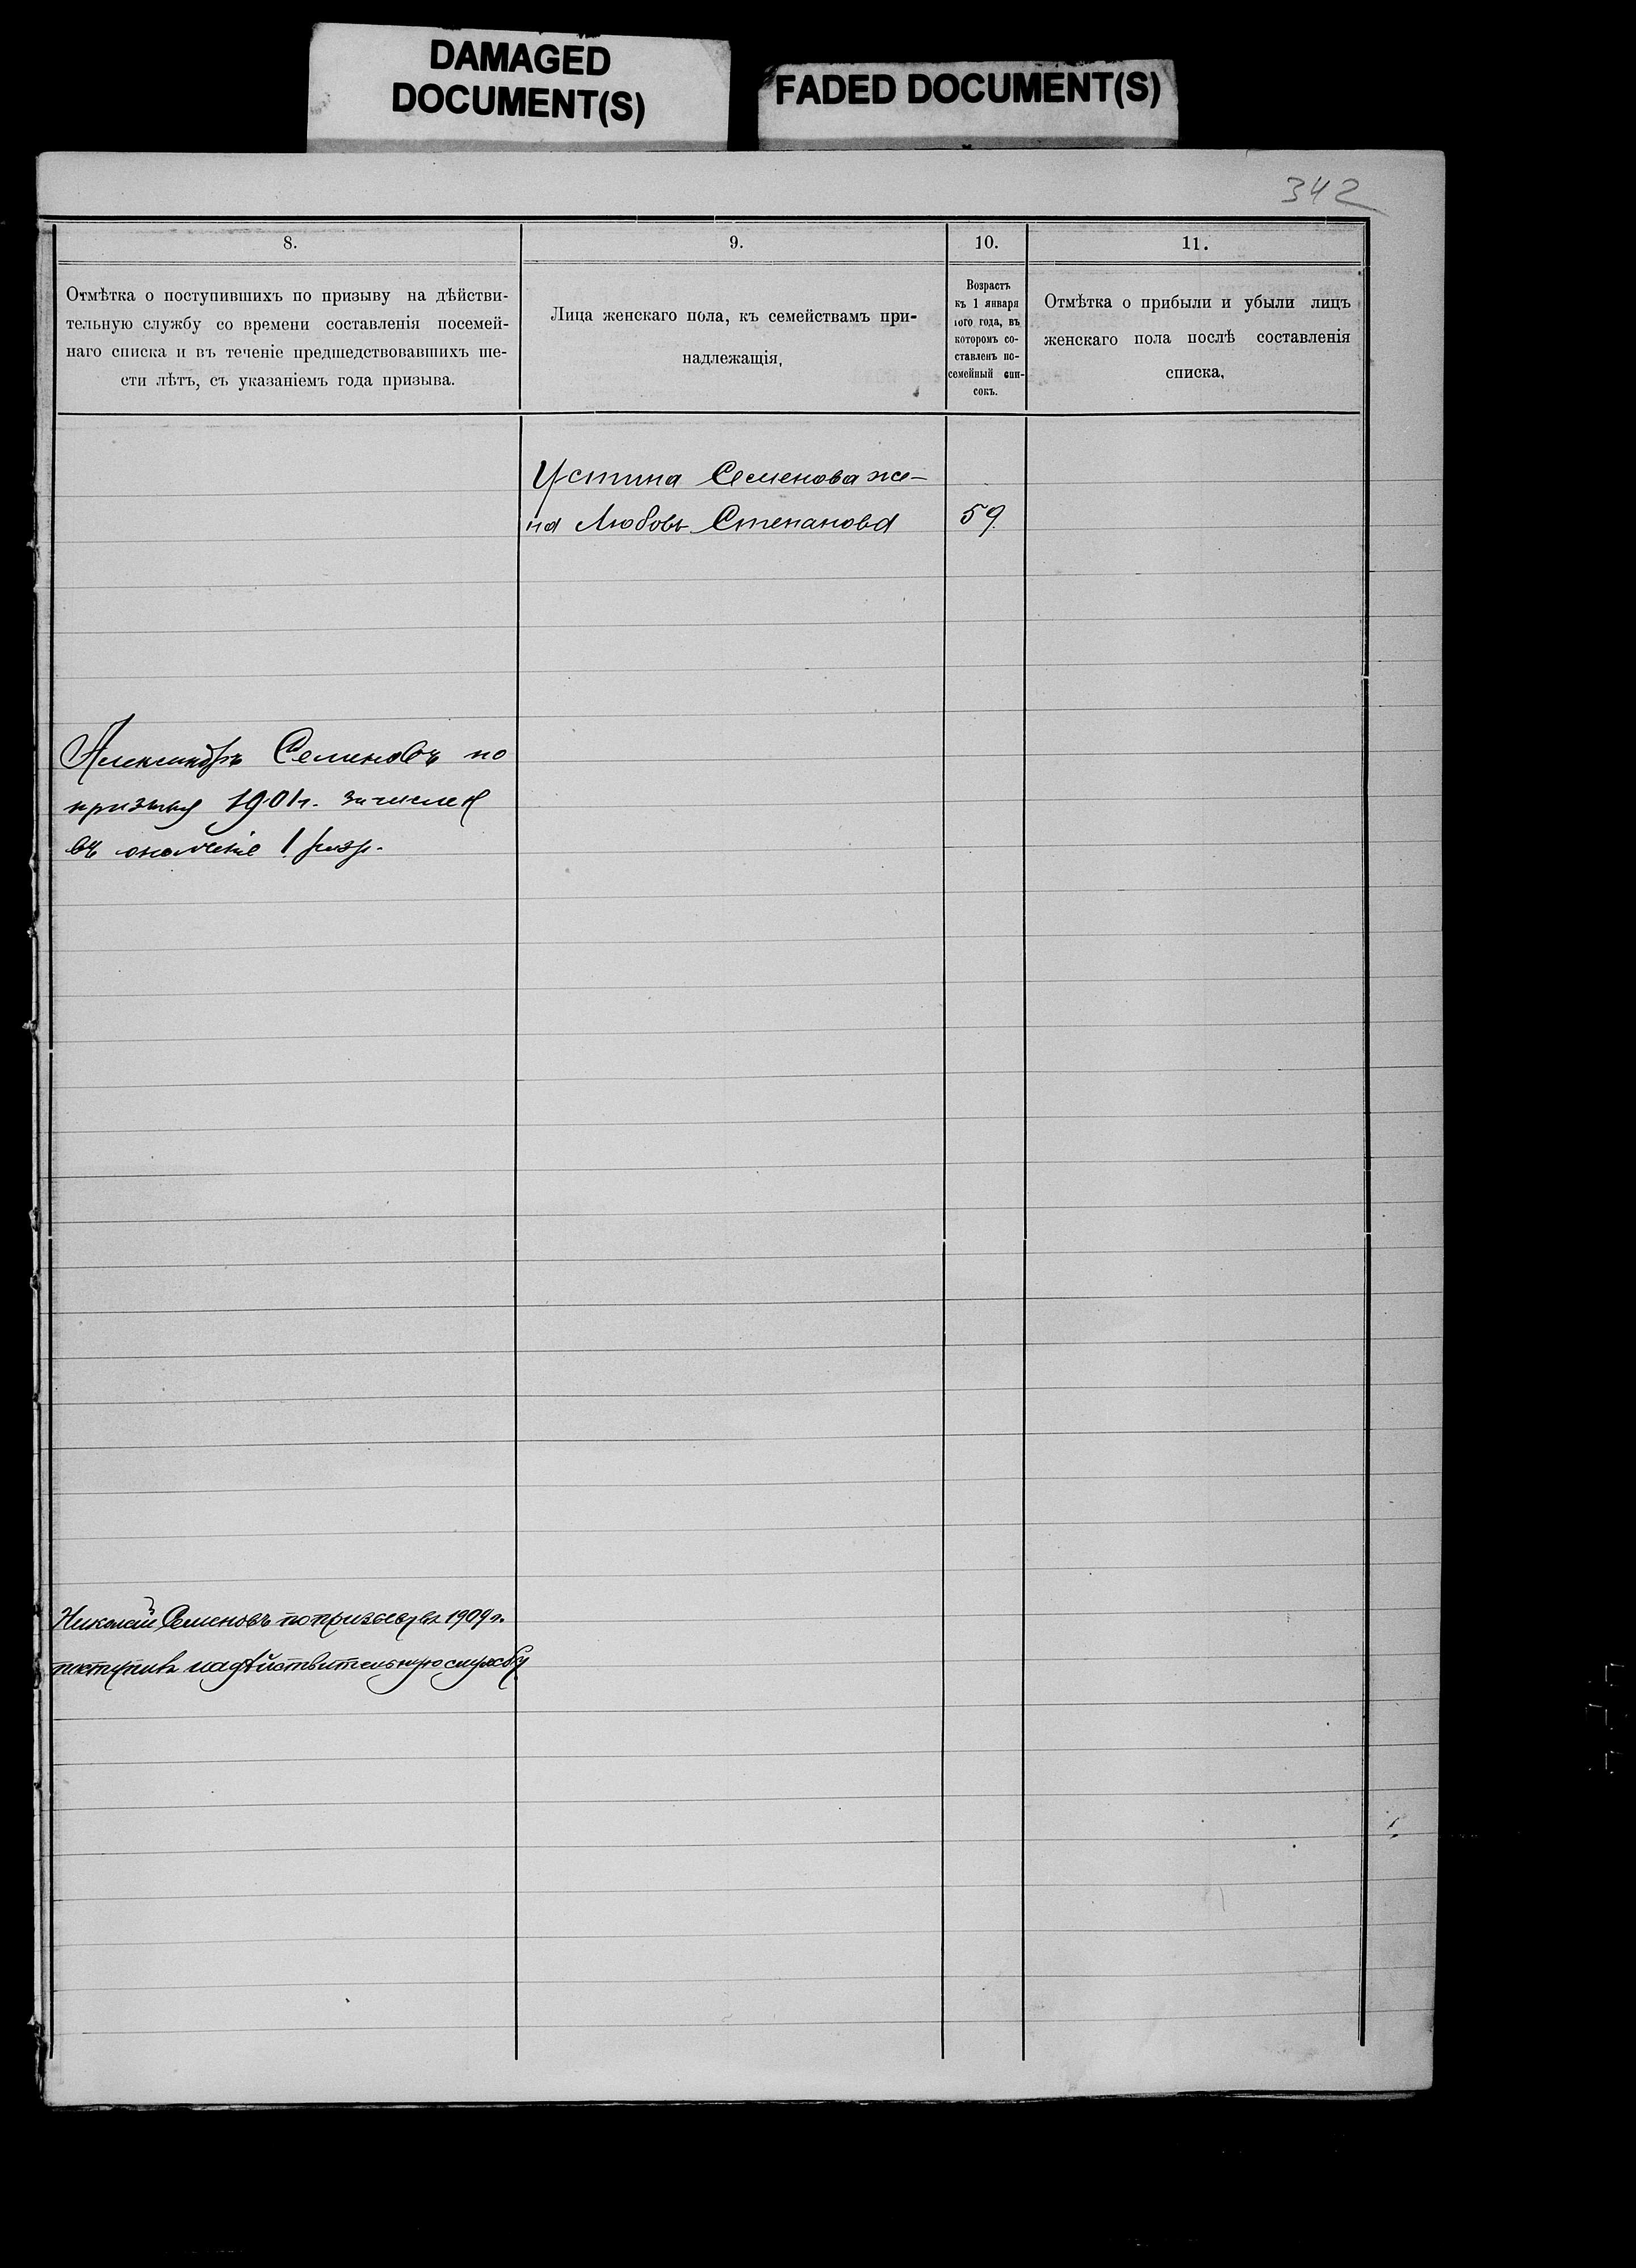 DAMAGED
DOCUMENT(S)
FADED DOCUMENT(S)
342
8.
9.
10.
11.
Отмѣтка о поступившихъ по призыву на дѣйстви-
тельную службу со времени составленія посемей-
наго списка и въ теченіе предшедствовавшихъ ше-
сти лѣтъ, съ указаніемъ года призыва.
Лица женскаго пола, къ семействамъ при-
надлежащія,
Возрастъ
къ 1 января
того года, въ
которомъ со-
ставленъ по-
семейный спи-
сокъ.
Отмѣтка о прибыли и убыли лицъ
женскаго пола послѣ составленія
списка,
Устина Семенова же-
на Любовь Степанова
59
Александръ Семеновъ по
призыву 1901 г. зачислен
въ ополченіе 1 разр.
Николай Семеновъ по призыву въ 1909 г.
поступилъ на дѣйствительную службу